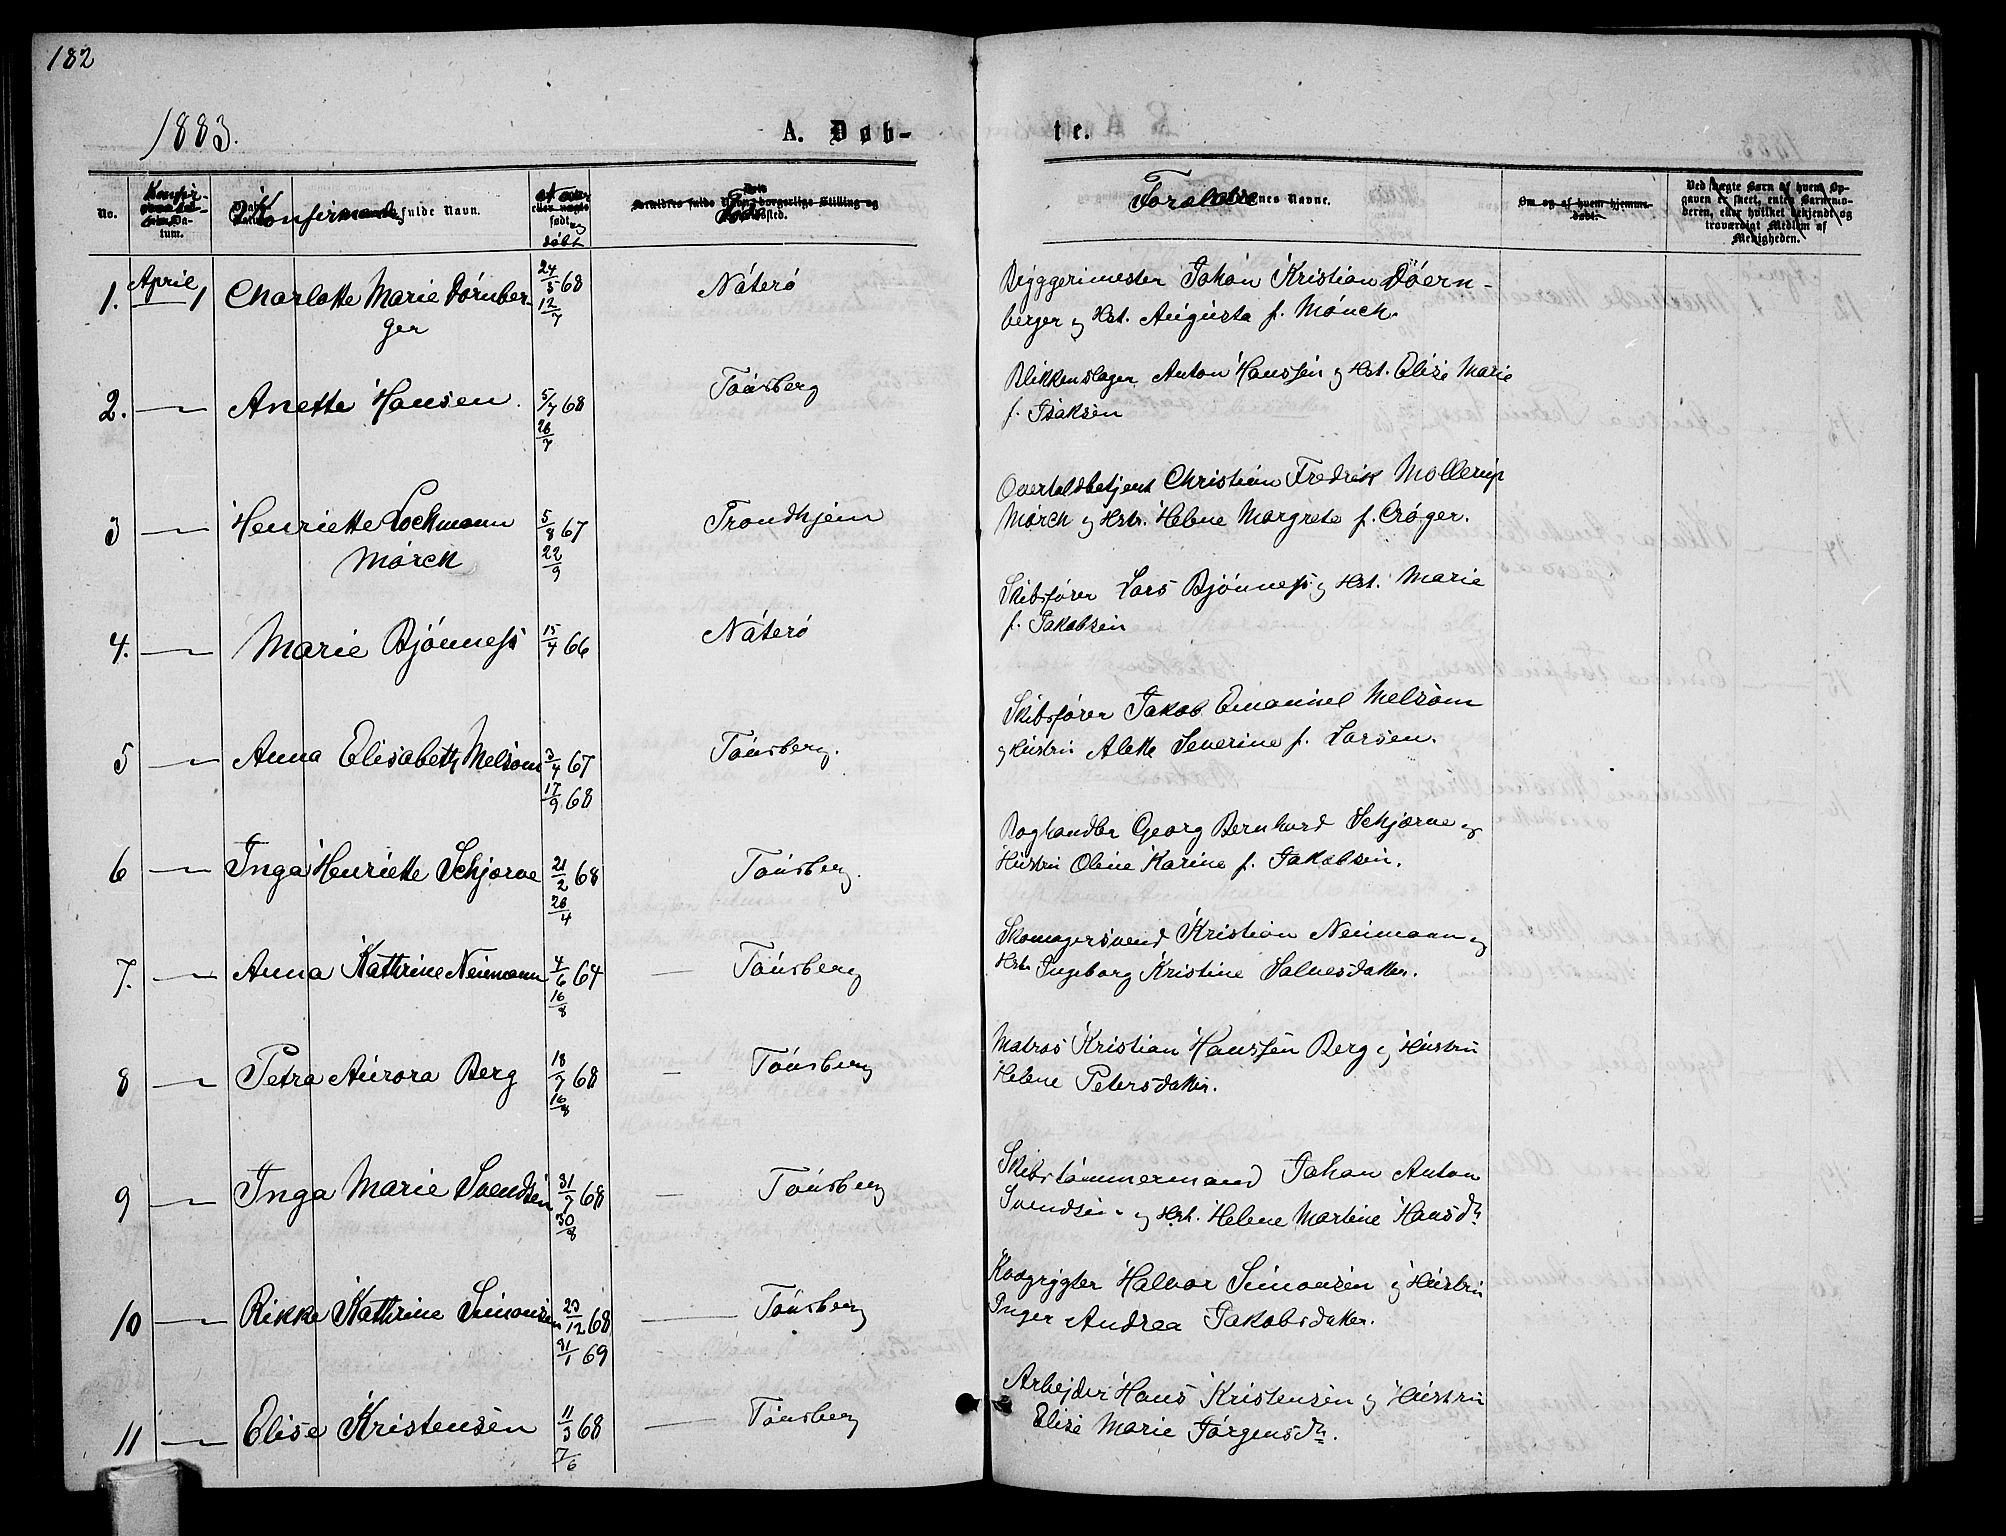 182
1883.
A. Døb-
te.
No.
Konfirmandens fulde Navn.
født og
døbt
Forældrenes Navne.
Om og af hvem hjemme-
døbt.
Ved uægte Barn af hvem Op-
gaven er skeet, enten Barnemo-
deren, eller hvilket bekjendt og
troværdigt Medlem af
Menigheden.
1. April 1 Charlotte Marie Dørnber-
ger
24/5 68
12/7
Nøterø
Byggerimester Johan Kristian Döern-
berger og Hst. Augusta f. Mönch.
2. — Anette Hansen.
5/7 68
26/7
Tønsberg
Blikkenslager Anton Hanssen og Hst. Elise Marie
f. Isaksen
3 — Henriette Lochmann
Mørch
5/8 67
22/9
Trondhjem
Overtoldbetjent Christian Fredrik Mollerup
Mørch og Hstr. Helene Margrete f. Crøger.
4. — Marie Bjønness
15/4 66
Nøterø
Skibsfører Lars Bjønness og Hst. Marie
f. Jakobsen
5 — Anna Elisabeth Melsom
3/4 67
17/9 68
Tønsberg.
Skibsfører Jakob Emanuel Melsom
og Hustru Alette Severine f. Larsen.
6 — Inga Henriette Schjørve
21/2 68
26/4
Tønsberg.
Boghandler Georg Bernhard Schjørve og
Hustru Olene Karine f. Jakobsen.
7. — Anna Kathrine Neumann
4/6 64
16/8
— Tønsberg
Skomagersvend Kristian Neumann og
Hst. Ingeborg Kristine Salvesdatter.
8 — Petra Aurora Berg
18/7 68
16/8
— Tønsberg
Matros Kristian Hanssen Berg og Hustru
Helene Petersdatter.
9 — Inga Marie Svendsen
31/7 68
30/8
— Tønsberg
Skibstømmermand Johan Anton
Svendsen og Hst. Helene Martine Hansdtr
10 — Rikke Kathrine Simonsen
23/12 68
31/1 69
— Tønsberg
Kvægrygter Halvor Simonsen og Hustru
Inger Andrea Jakobsdatter.
11 — Elise Kristensen
11/3 68
7/6
— Tønsberg
Arbejder Hans Kristensen og Hustru
Elise Marie Jørgensdtr.